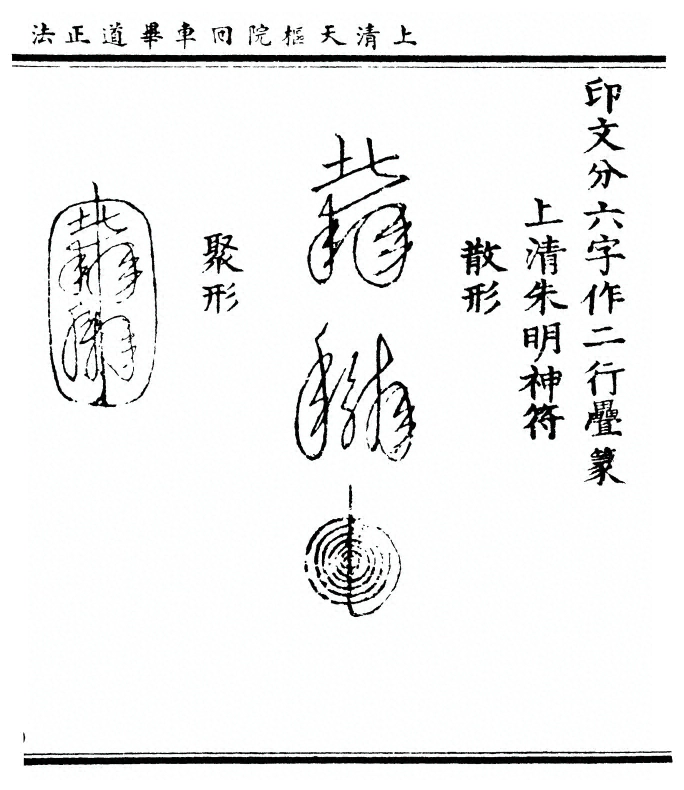 上清天樞院回車畢道正法
印文分六字作二行疊篆
上清朱明神符
散形
聚形